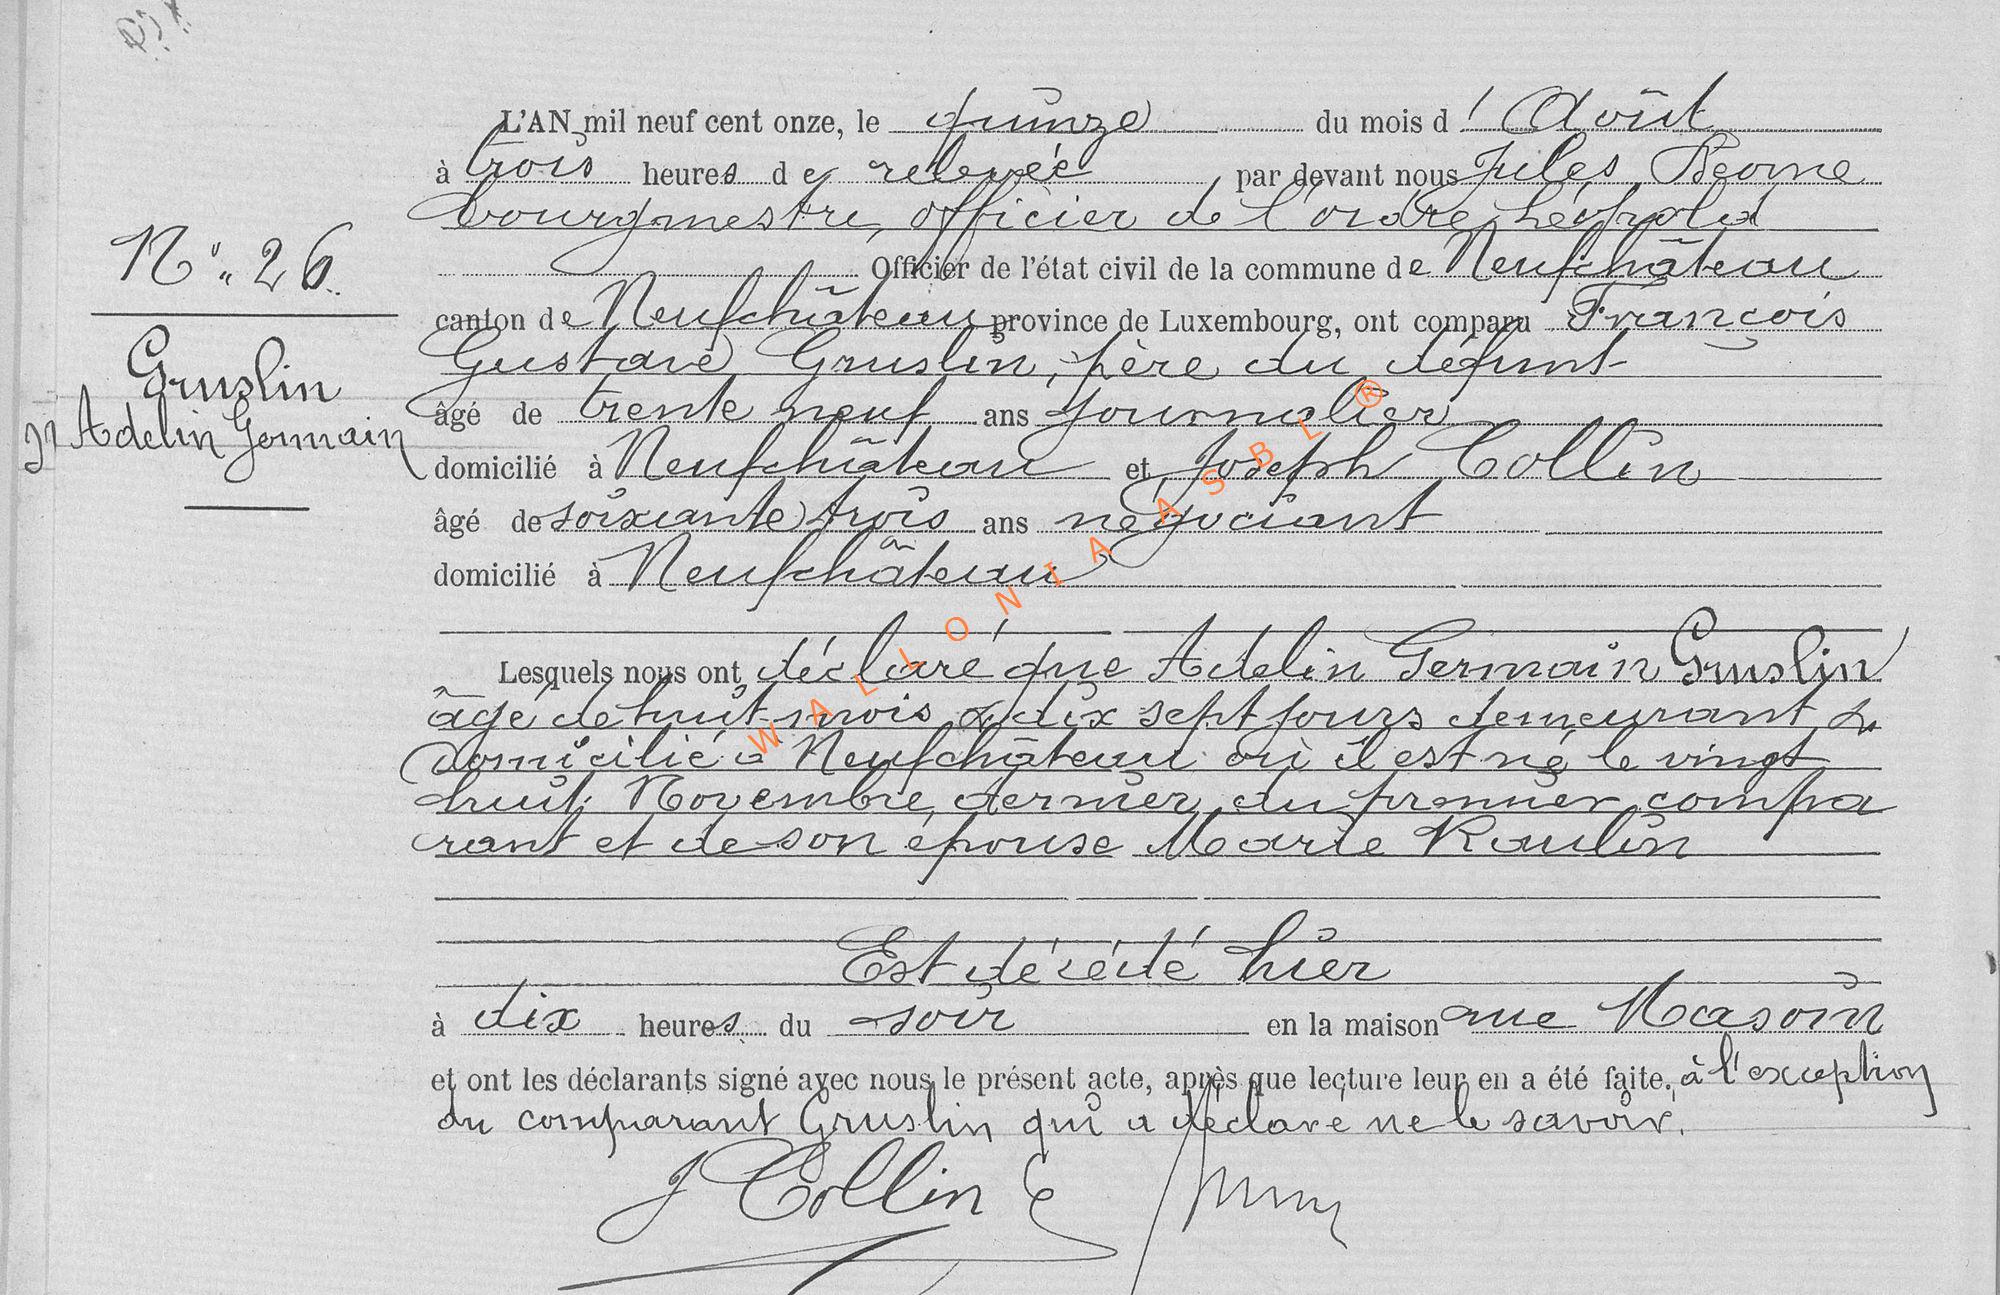 N° 26.
Gruslin
Adelin Germain
L'AN mil neuf cent onze, le quinze du mois d'Août
à trois heures de relevée par devant nous Jules
bourgmestre, officier de l'ordre Léopold
Officier de l'état civil de la commune de Neufchâteau
canton de Neufchâteau province de Luxembourg, ont comparu François
Gustave Gruslin, père du défunt
âgé de trente neuf ans journalier
domicilié à Neufchâteau et Joseph Collin
âgé de soixante trois ans négociant
domicilié à Neufchâteau
Lesquels nous ont déclaré que Adelin Germain Gruslin
âgé de huit mois & dix sept jours demeurant &
domicilié à Neufchâteau où il est né le vingt
huit Novembre dernier, du premier compa
rant et de son épouse Marie Raulin
Est décédé hier
à dix heures du soir en la maison rue Masoin
et ont les déclarants signé avec nous le présent acte, après que lecture leur en a été faite. à l'exception
du comparant Gruslin qui a déclaré ne le savoir.
J Collin
WALLONIA ASBL ®